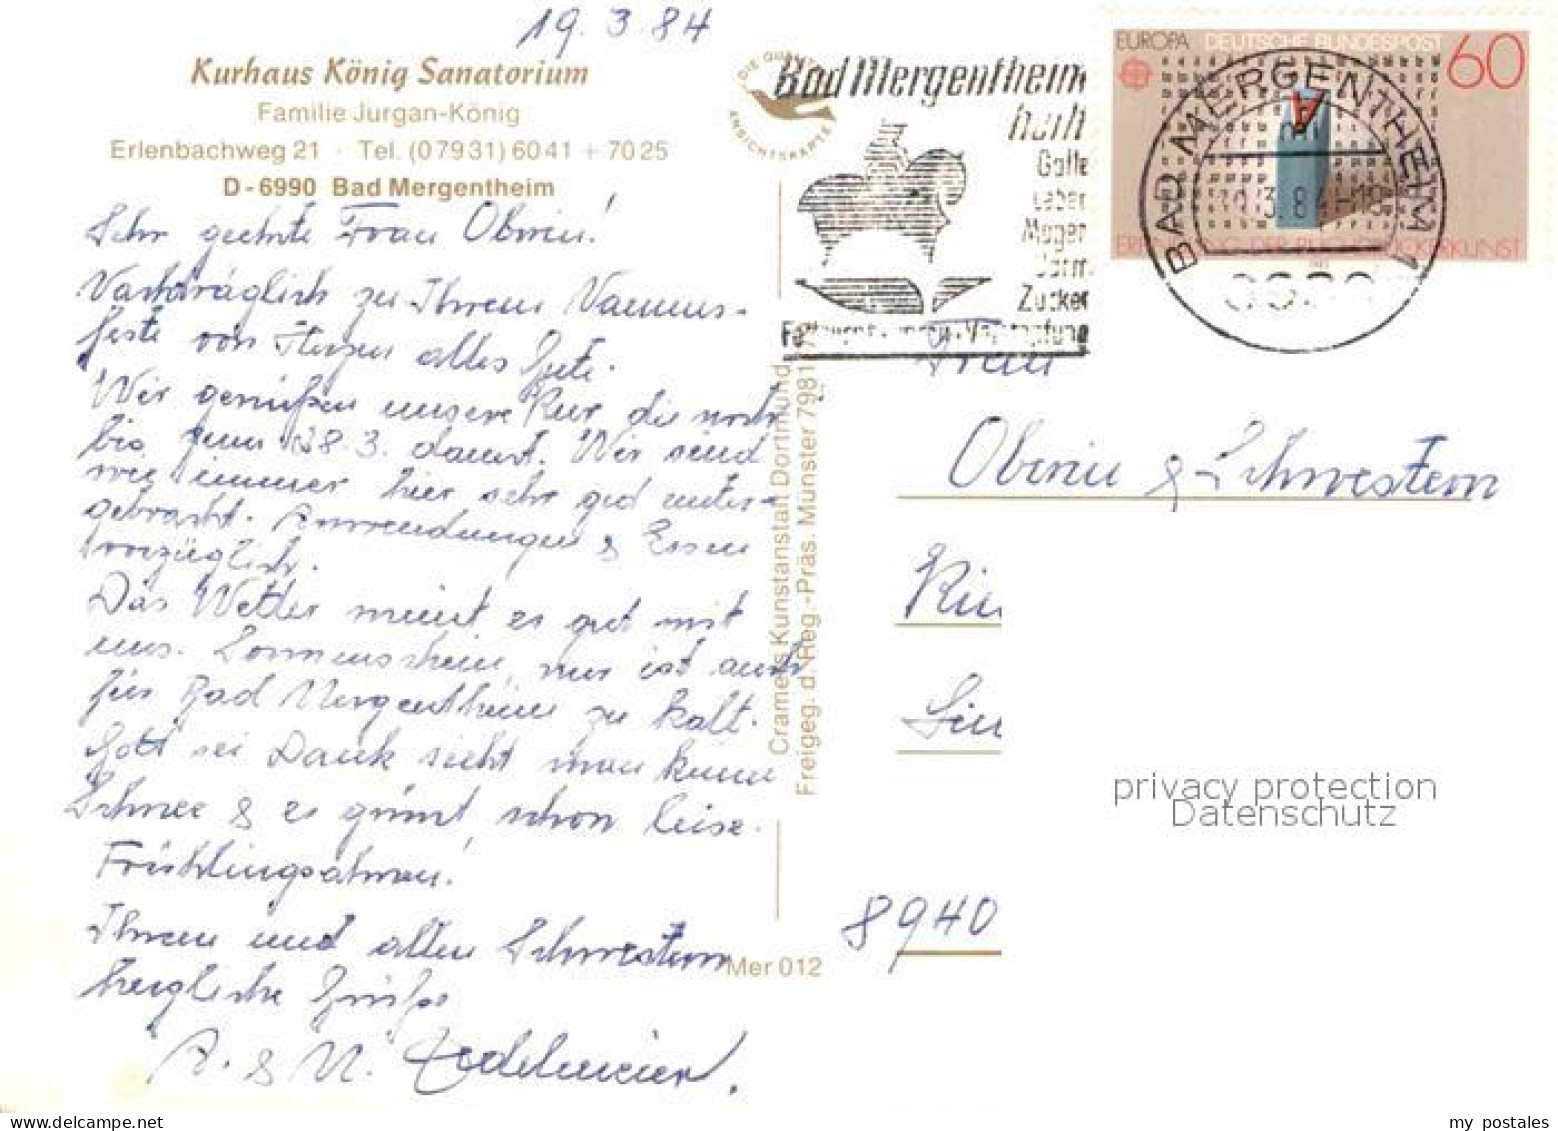 19. 3. 84
Kurhaus König Sanatorium
Familie Jurgan-König
Erlenbachweg 21 · Tel. (07931) 6041 + 7025
D-6990 Bad Mergentheim
Sehr geehrte Frau Oberin!
Nachträglich zu Ihrem Namens-
feste von Herzen alles Gute.
Wir genießen unsere Kur die noch
bis zum 28.3. dauert. Wir sind
wie immer hier sehr gut unter-
gebracht. Anwendungen & Essen
vorzüglich.
Das Wetter meint es gut mit
uns. Sonnenschein, nur ist auch
für Bad Mergentheim zu kalt.
Gott sei Dank sieht man keine
Schnee & es grünt schon leise.
Frühlingsahnen!
Ihnen und allen Schwestern
herzliche Grüße
A. & M.
DIE QUALITÄTS
ANSICHTSKARTE
Cramers Kunstanstalt Dortmund
Freigeg. d. Reg.-Präs. Münster 7981
Mer 012
Bad Mergentheim
heilt
Galle
Leber
Magen
Darm
Zucker
Fettsucht · Verstopfung
EUROPA DEUTSCHE BUNDESPOST 60
ERFINDUNG DER BUCHDRUCKERKUNST
BAD MERGENTHEIM 1
6990
Frau
Oberin & Schwestern
8940
privacy protection
Datenschutz
my postales